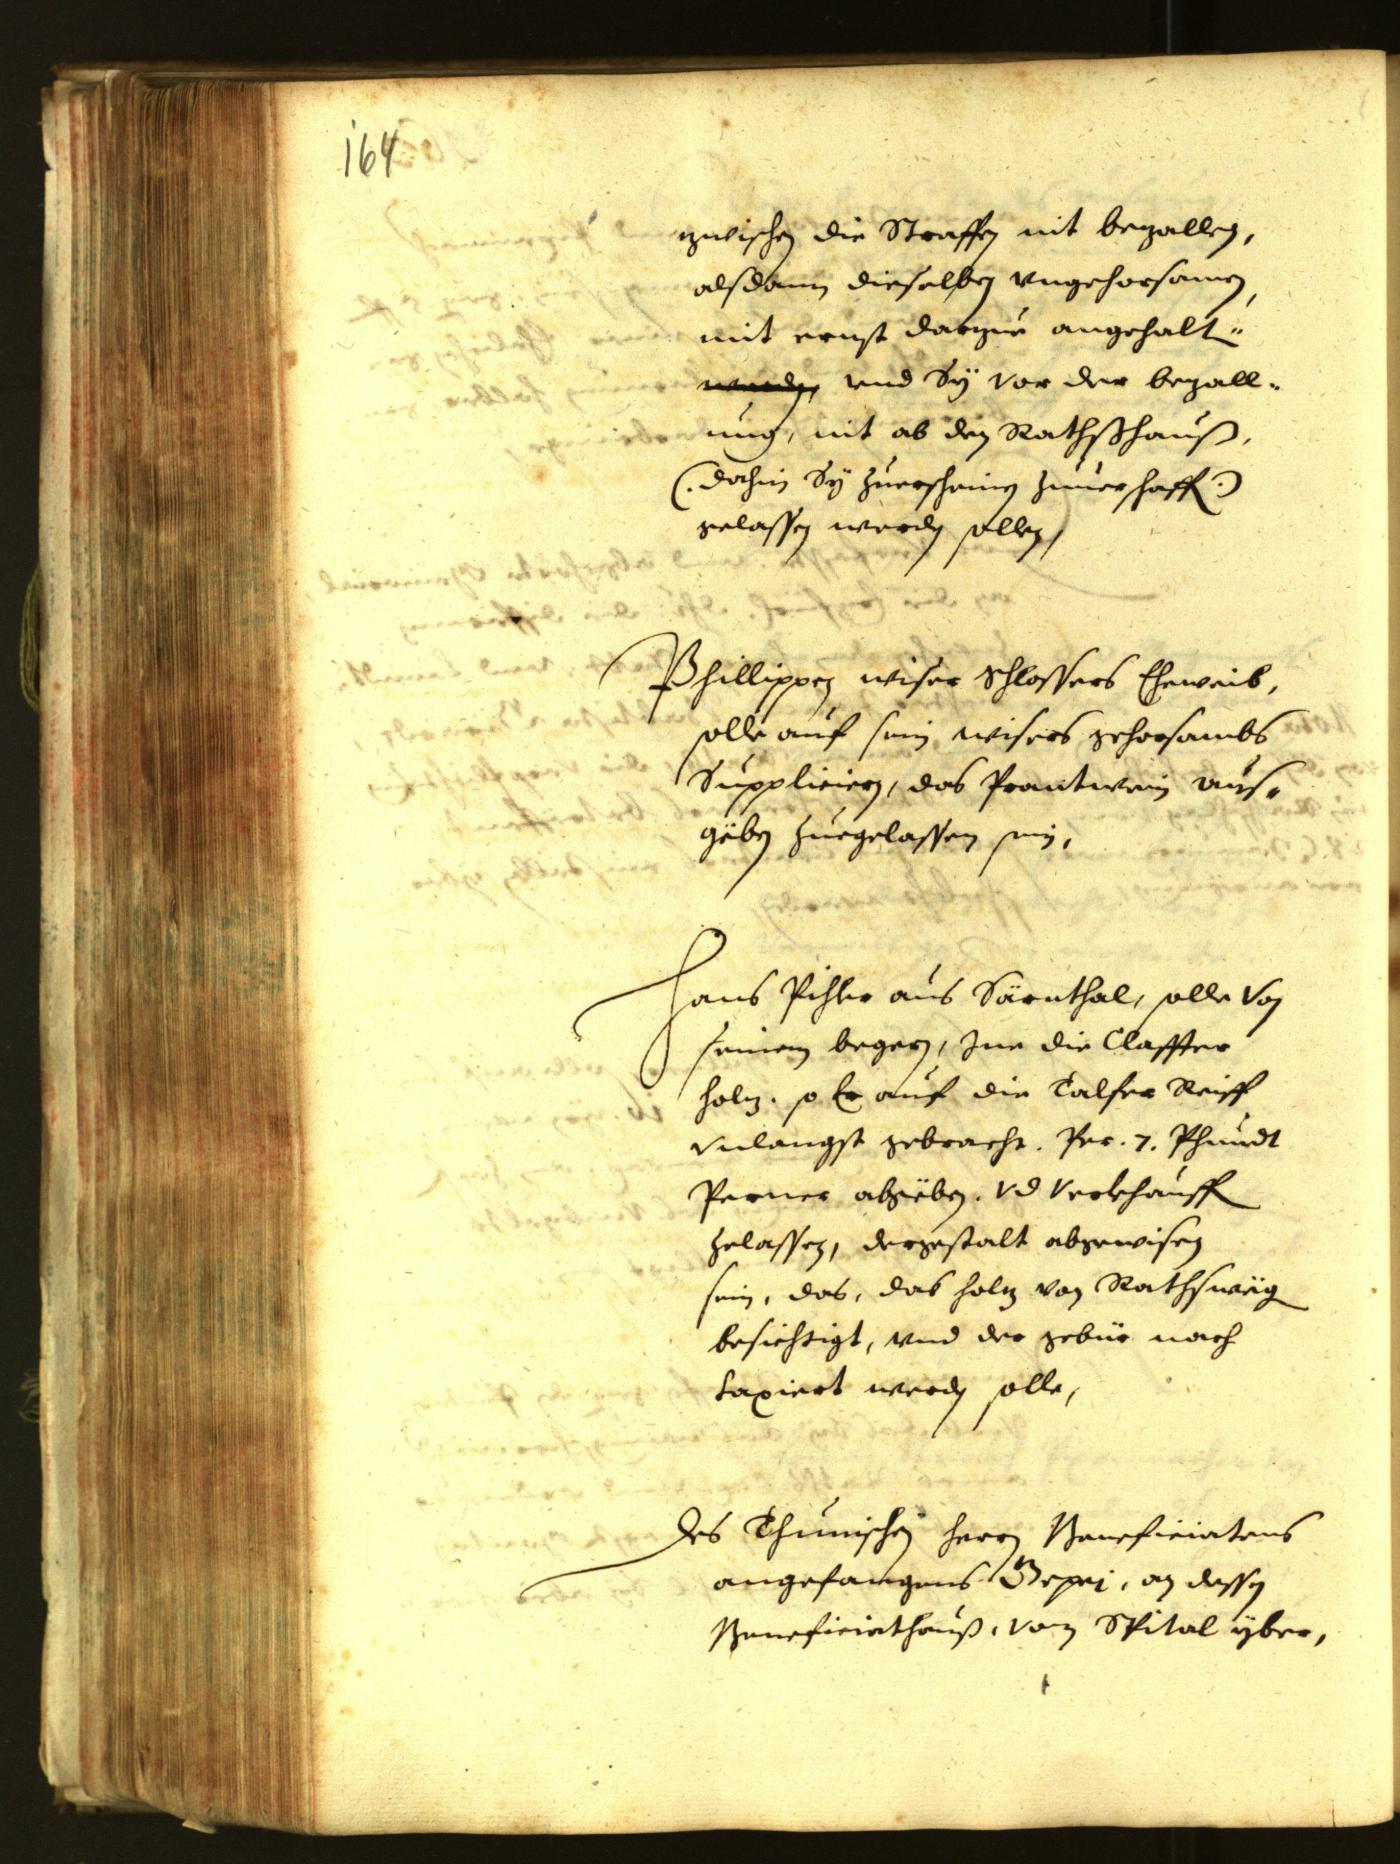 164
zwischen die Straffen nit bezallen,
alsdann dieselben vngehorsamen,
mit ernst darzue angehalt¬
werden, vnd Sÿ vor der bezall¬
ung, nit ab den Rathßhauß,
(. dahin Sÿ zuerscheinen zuuerschaff .)
gelassen werden sollen,
Phillippen wiser Schlossers Eheweib,
solle auf sein wisers gehorsambs
Supplicieren, das Prantwein aus¬
gëben zuegelassen sein,
Hans Pihler aus Särnthal, solle von
seinem begern, Ine die Claffter
holz. so Er auf die Talfer Reiff
vnlangst gebracht. Per. 7. Phundt
Perner abgëben. vnd verkhauff
zelassen, dergestalt abgewisen
sein, das, das holz von Rathswëg
besichtigt, vnd der gebür nach
taxiert werden solle,
Des Thunischen herrn Beneficiatens
angefangens Gepej, an dessen
Beneficiathauß, vom Spital yber,